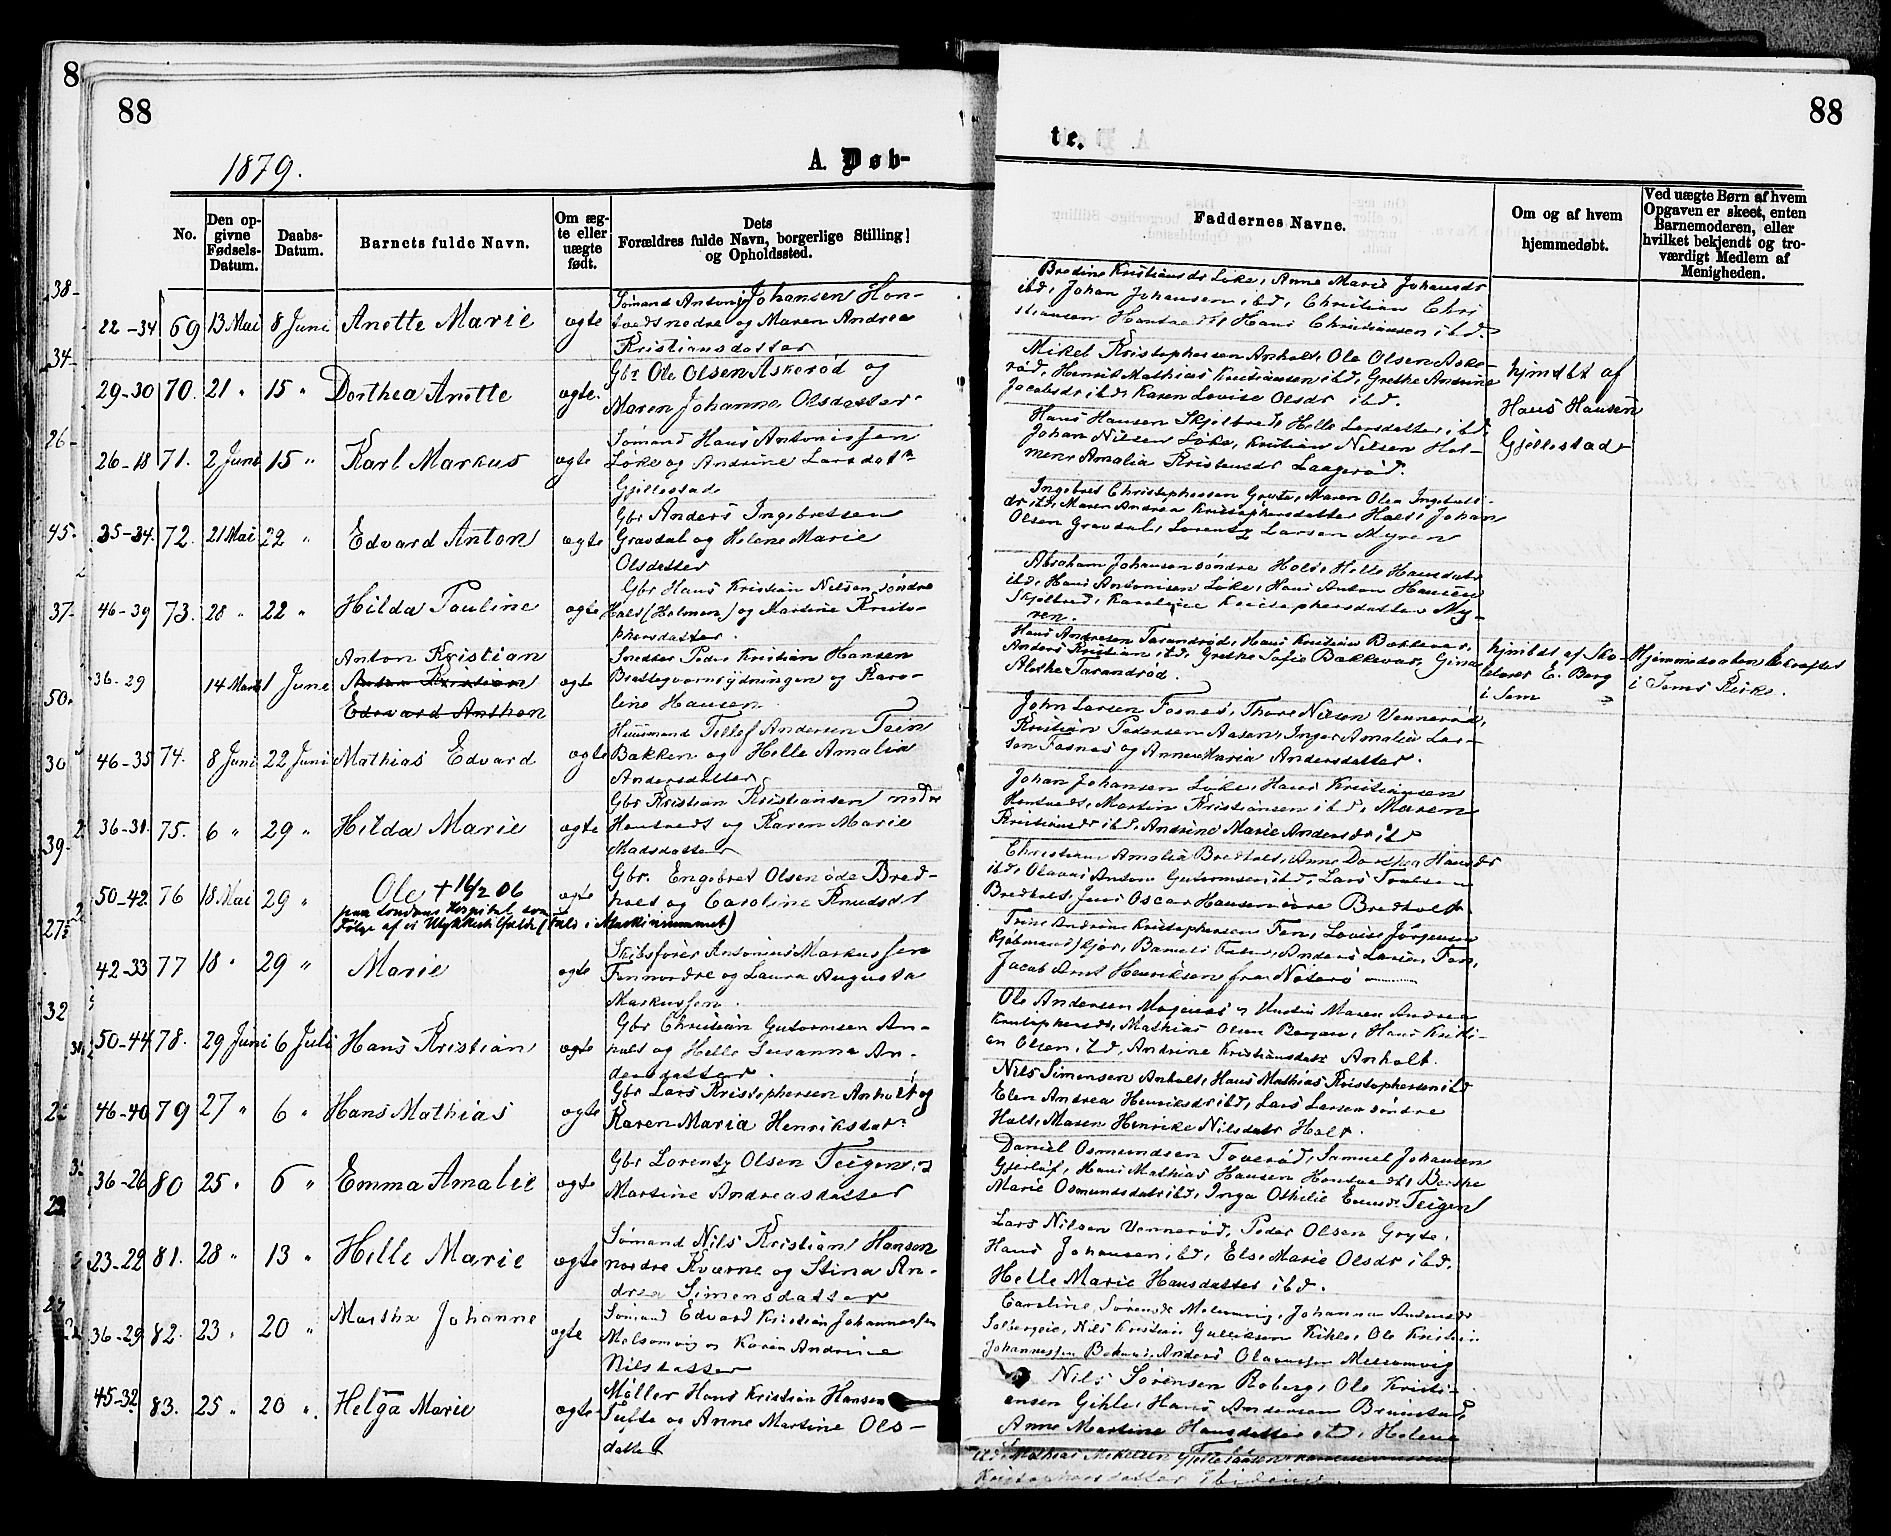 8
88
88
1879.
A. Døb-
te.
No.
Den op-
givne
Fødsels-
Datum.
Daabs-
Datum.
Barnets fulde Navn.
Om æg-
te eller
uægte
født.
Dets
Forældres fulde Navn, borgerlige Stilling
og Opholdssted.
Faddernes Navne.
Om og af hvem
hjemmedøbt.
Ved uægte Børn af hvem
Opgaven er skeet, enten
Barnemoderen, eller
hvilket bekjendt og tro-
værdigt Medlem af
Menigheden.
22-34 69 13 Mai 8 Juni Anette Marie ægte
Sømand Antoni Johansen Hon-
tvedt nedre og Maren Andrea
Kristiansdatter
Bredine Kristiansdr Løke, Anne Marie Johansdr
ibd, Johan Johansen ibd, Christian Chri
stiansen Hontvedt, Hans Christiansen ibd.
29-30 70. 21 " 15 " Dorthea Anette ægte.
Gbr Ole Olsen Askerød og
Maren Johanne Olsdatter
Mikel Kristophersen Anholt, Ole Olsen Aske-
rød, Henrik Mathias Kristiansen ibd, Grethe Andrine
Jacobsdr ibd, Karen Lovise Olsdr ibd.
hjmdbt af
Hans Hansen
Gjellestad
26-18 71. 2 Juni 15 " Karl Markus ægte
Sømand Hans Antonissen
Løke og Andrine Larsdatr
Gjellestad
Hans Hansen Skjelbred, Helle Larsdatter ibd
Johan Nilsen Løke, Kristian Nilsen Hol-
men, Amalia Kristensdr Laagerød.
35-34. 72. 21 Mai 22 " Edvard Anton ægte
Gbr Anders Ingebretsen
Gravdal og Helene Marie
Olsdatter
Ingebret Christophersen Gryte, Maren Olea Ingebrets-
dr ibd, Maren Andrea Kristophersdatter Holt, Johan
Olsen Gravdal, Lorentz Larsen Myren
46-39 73. 28 " 22 " Hilda Pauline ægte
Gbr Hans Kristian Nilsen søndre
Holt (Holmen) og Martine Kristo-
phersdatter.
Abraham Johansen søndre Holt, Helle Hansdatr
ibd, Hans Antonisen Løke, Hans Anton Hansen
Skjelbred, Karoline Kristophersdatter My-
ren.
36-29 14 Marts 1 Juni Anton Kristian
Anton Kristian
Edvard Anthon
ægte
Snedker Peder Kristian Hansen
Brattegvarnsrydningen og Karo-
line Hansen
Hans Andresen Tarandrød, Hans Kristian Bakkevar,
Anders Kristian ibd, Grethe Sofie Bakkevar, Gina
Alethe Tarandrød.
hjmdbt af Sko-
lelærer E. Berg
i Sem
Hjemmedaaben bekræftet
i Sems Kirke.
46-35 74. 8 Juni 22 Juni Mathias Edvard ægte
Huusmand Tellef Andersen Tein
Bakken og Helle Amalia
Andersdatter
John Larsen Fosnæs, Thore Nilsen Vennerød,
Kristian Pedersen Aasen, Inger Amalia Lar-
sen Fosnæs og Anne Maria Andersdatter.
36-31. 75. 6 " 29 " Hilda Marie ægte
Gbr Kristian Kristiansen nedre
Hontvedt og Karen Marie
Madsdatter
Johan Johansen Løke, Hans Kristiansen
Hontvedt, Martin Kristiansen ibd, Maren
Kristiansdr ibd, Andrine Marie Andersdr ibd
50-42. 76 18 Mai 29 " Ole + 16/2 06 ægte
paa Londons Hospital som
Følge af et Ulykkestilfælde (Fald i Maskinrummet)
Gbr. Engebret Olsen øde Bred-
holt og Caroline Knudsdr
Christiane Amalia Bredholt, Anne Dorthea Hansdr
ibd, Olaves Anton Gutormsen ibd, Lars Tronsen
Bredholt, Jens Oscar Hansen øvre Bredholt
42-33 77 18 " 29 " Marie ægte
Skibsfører Antonius Markussen
Fen nordre og Laura Augusta
Markussen.
Trine Andrine Kristophersen Fen, Lovise Jørgensen
Kjøbmand Kjør, Barnets Fader, Anders Larsen Fen,
Jacob Arnt Henriksen fra Nøterø
50-44 78. 29 Juni 6 Juli Hans Kristian ægte
Gbr Christian Gutormsen An-
holt og Helle Susanna An-
dersdatter.
Ole Andersen Mogenæs og Hustru Maren Andrea
Kristophersdr, Mathias Olsen Bergan, Hans Kristi-
an Olsen ibd, Andrine Kristiansdatr Anholt.
46-40 79 27 " 6 " Hans Mathias ægte
Gbr Lars Kristophersen Anholt og
Karen Maria Henriksdatr
Nils Simonsen Anholt, Hans Mathias Kristophersen ibd
Elen Andrea Henriksdr ibd, Lars Larsen søndre
Holt, Maren Henrike Nilsdatr Holt.
36-26 80 25 " 6 " Emma Amalie ægte
Gbr Lorentz Olsen Teigen og
Martine Andreasdatter
Daniel Osmundsen Toverød, Samuel Johansen
Gjerløf, Hans Mathias Hansen Hontvedt, Berthe
Marie Osmundsdatr ibd, Inga Othelie Evensdr Teigen
23-22 81. 28 " 13 " Helle Marie ægte
Sømand Nils Kristian Hansen
nordre Kværne og Stina An-
drea Simensdatter
Lars Nilsen Vennerød, Peder Olsen Gryte,
Hans Johansen ibd, Else Marie Olsdr ibd,
Helle Marie Hansdatter ibd.
36-29 82. 23 " 20 " Martha Johanne ægte
Sømand Edvard Kristian Johannessen
Melsomvig og Karen Andrine
Nilsdatter
Caroline Sørensdr Melsomvig, Johanna Andersdr
Solbergeie, Nils Kristian Gulliksen Kihle, Ole Kristian
Johannessen, Anders Olaussen Melsomvig
45-32. 83. 25 " 20 " Helga Marie ægte
Møller Hans Kristian Hansen
Tufte og Anne Martine Ols-
datter
Nils Sørensen Roberg, Ole Kristi-
ansen Gihle, Hans Andersen Brunstad,
Anne Martine Hansdatter ibd, Helene
Kristophersdatter ibidem.
38-
34-
26-
45-
37-
50.
30
39.
32